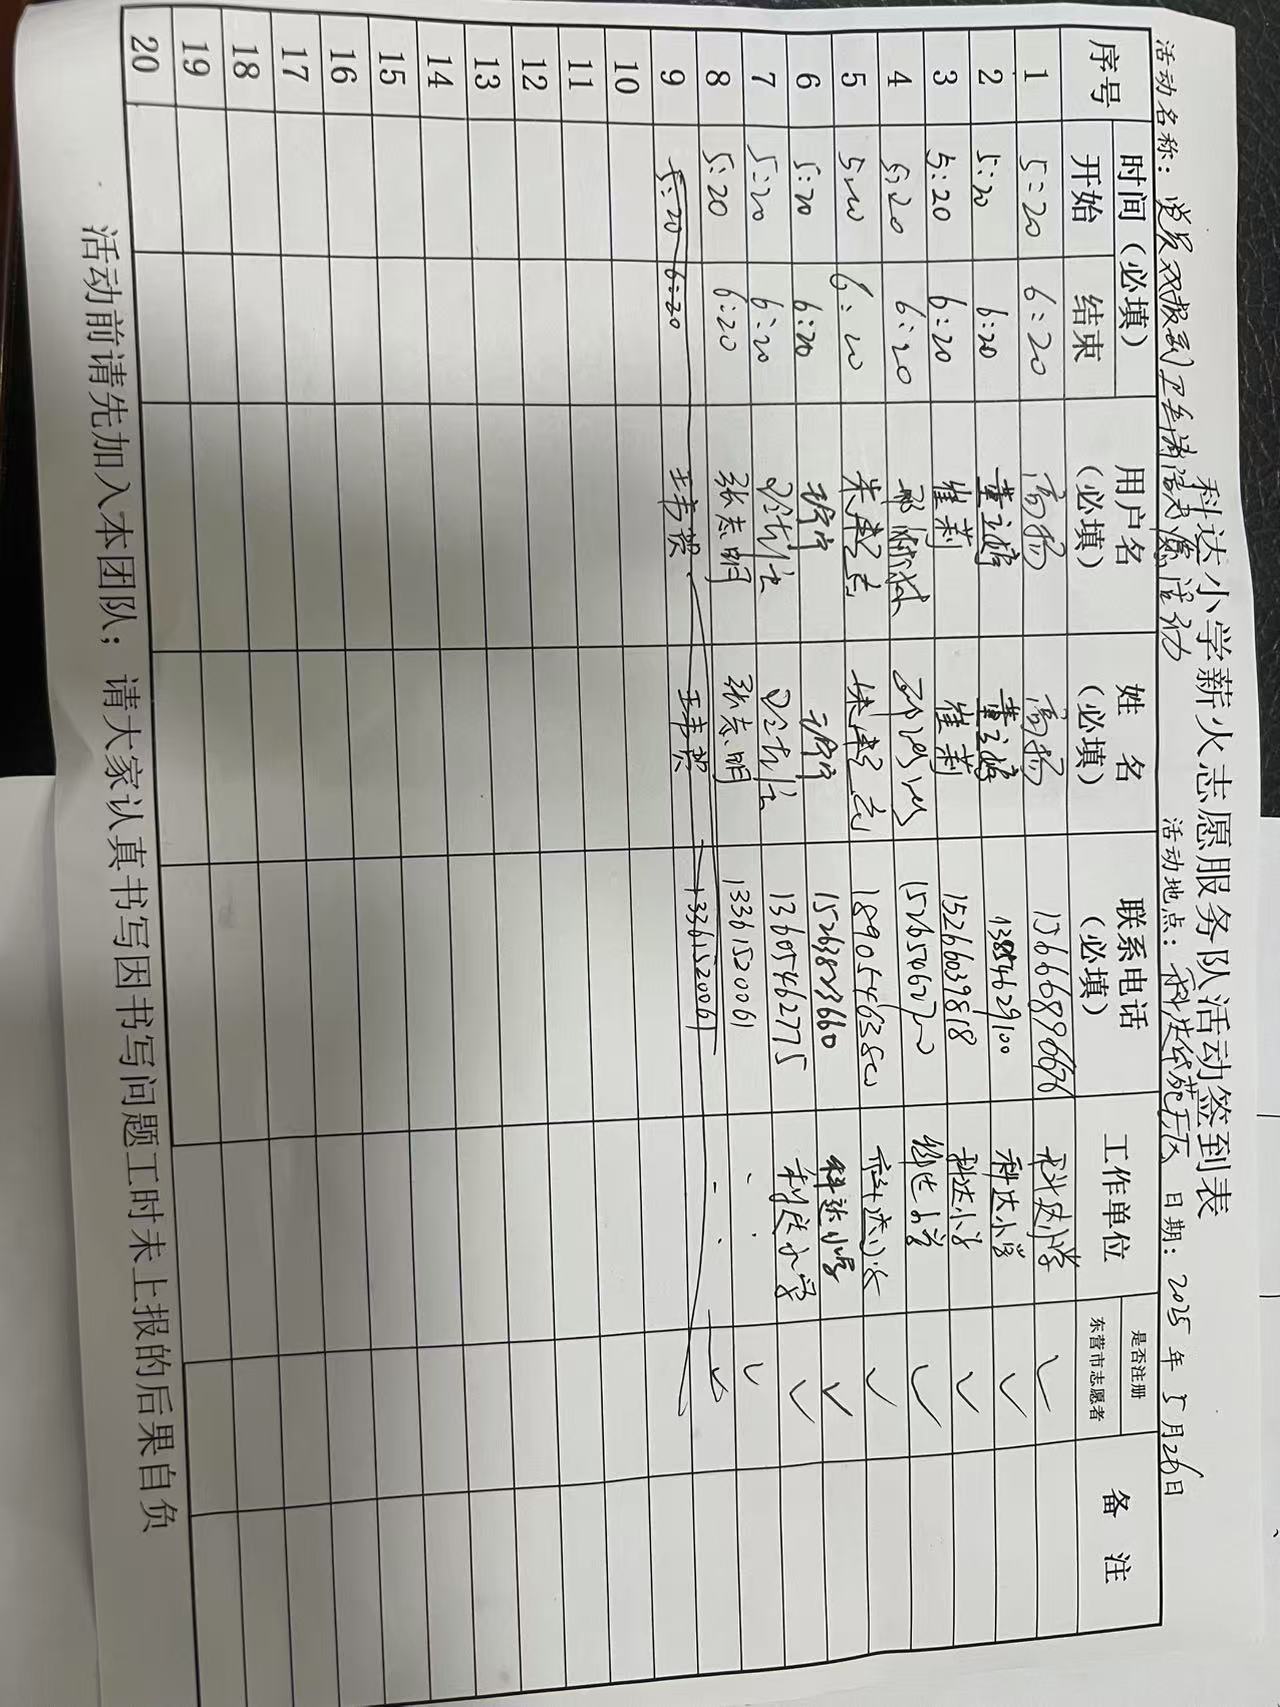 科达小学薪火志愿服务队活动签到表
活动名称：党员双报到卫生清洁志愿活动 活动地点：科达华苑社区 日期：2025年5月26日
序号 时间（必填） 用户名（必填） 姓名（必填） 联系电话（必填） 工作单位 是否注册东营市志愿者 备注
开始 结束
1 5:20 6:20 高杨 高杨 科达小学 ✓
2 5:20 6:20 科达小学 ✓
3 5:20 6:20 崔莉 崔莉 15266039818 科达小学 ✓
4 5:20 6:20 科达小学 ✓
5 5:20 6:20 科达小学 ✓
6 5:20 6:20 15263823660 科达小学 ✓
7 5:20 6:20 13605462775 科达小学 ✓
8 5:20 6:20 张志明 张志明 13361520061 ✓
9 5:20 6:20 13361520061
10
11
12
13
14
15
16
17
18
19
20
活动前请先加入本团队；请大家认真书写因书写问题工时未上报的后果自负